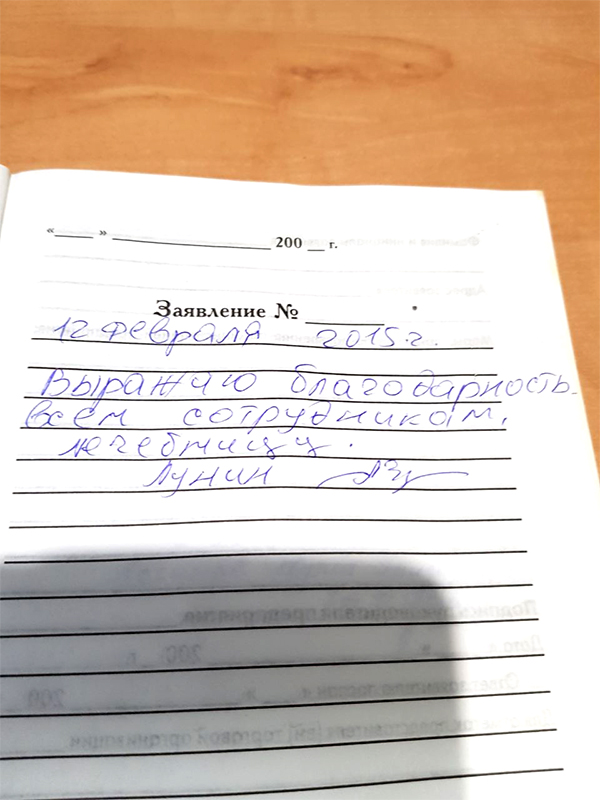 «____» ______________ 200 __ г.
Заявление № ________
12 февраля 2015 г.
Выражаю благодарность
всем сотрудникам,
лечебницы.
Лунин